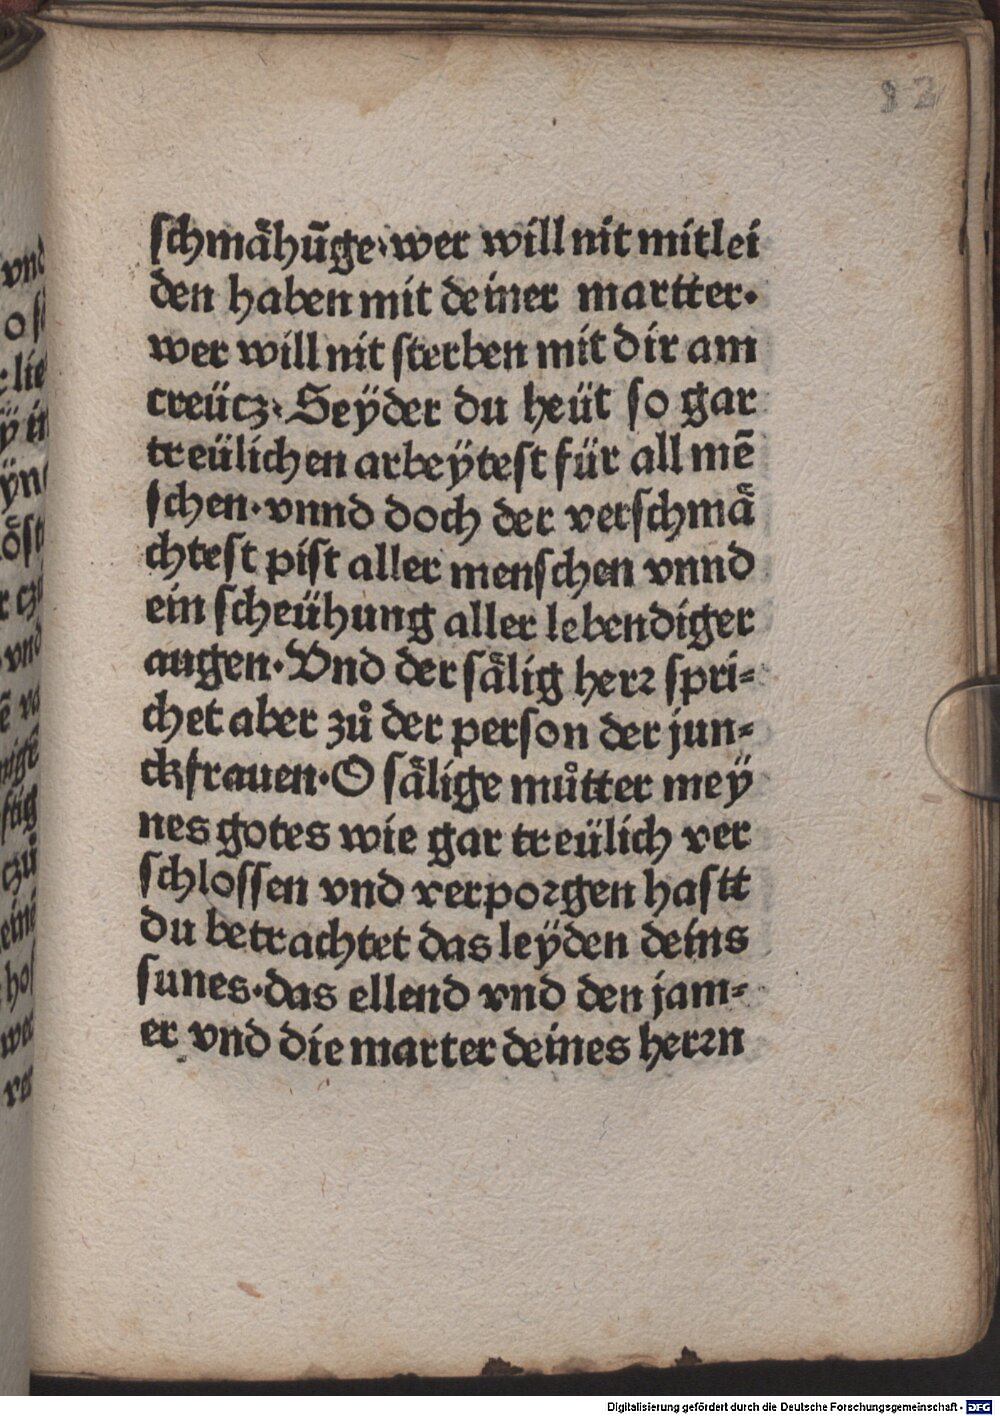 32
schmaͤhūge·wer will nit mitlei
den haben mit deiner martter·
wer will nit sterben mit dir am
creücz· Seÿder du heüt so gar
treülichen arbeÿtest für all mē
schen·vnnd doch der verschmaͤ
chtest pist aller menschen vnnd
ein scheühung aller lebendiger
augen·Vnd der saͤlig herꝛ spri⸗
chet aber zuͦ der person der jun⸗
ckfrauen·O saͤlige muͦtter meÿ
nes gotes wie gar treülich ver
schlossen vnd verpoꝛgen hastt
du betrachtet das leÿden deins
sunes·das ellend vnd den jam⸗
er vnd die marter deines herꝛn
Digitalisierung gefördert durch die Deutsche Forschungsgemeinschaft - DFG